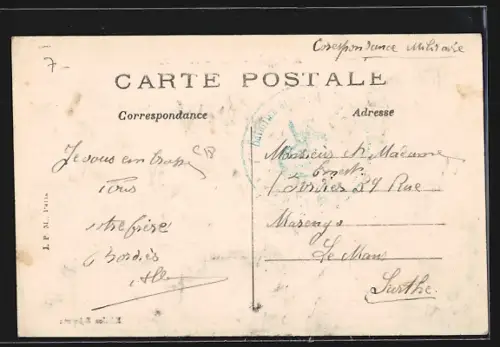 7-
Corespondance Militaire
CARTE POSTALE
Correspondance
Adresse
Je vous embrasse
Tous
votre frère
Bordiés
Monsieur et Madame
Ernest
Bordiés 29 Rue
Marengo
Le Mans
Sarthe.
J. P. M. Paris